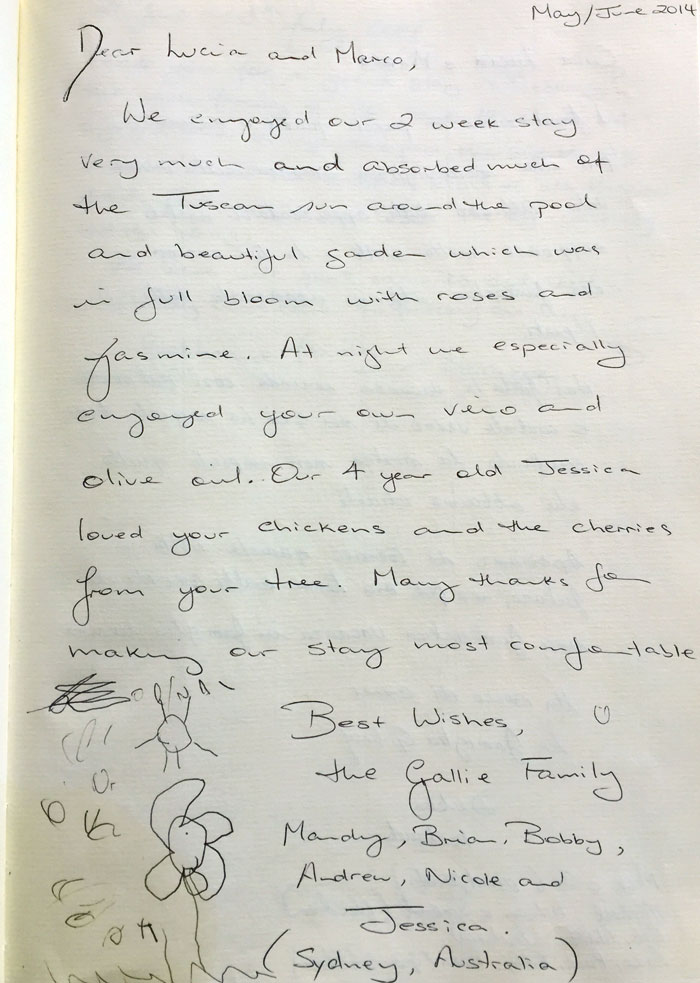 May/June 2014
Dear Lucia and Marco,
We enjoyed our 2 week stay
very much and absorbed much of
the Tuscan sun around the pool
and beautiful garden which was
in full bloom with roses and
jasmine. At night we especially
enjoyed your own vino and
olive oil. Our 4 year old Jessica
loved your chickens and the cherries
from your tree. Many thanks for
making our stay most comfortable
Best Wishes,
the Gallie Family
Mandy, Brian, Bobby,
Andrew, Nicole and
Jessica.
(Sydney, Australia)